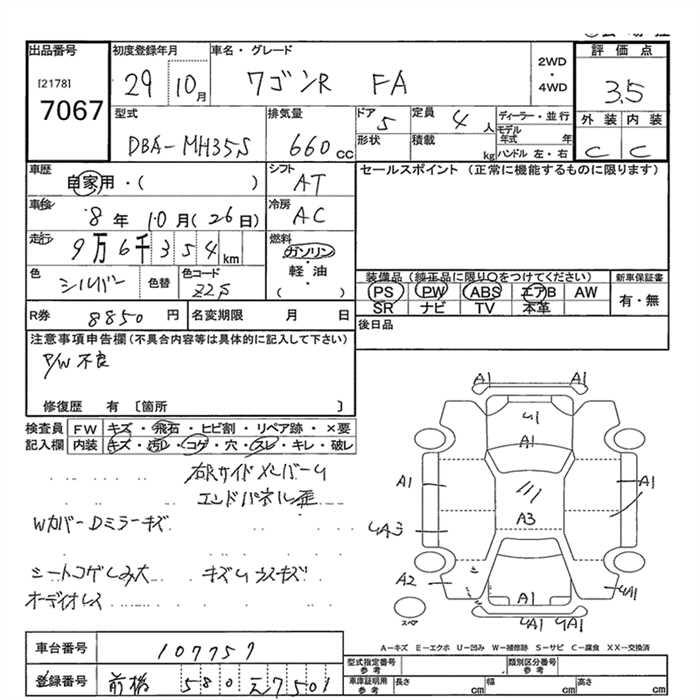 出品番号 初度登録年月 車名・グレード 2WD ・ 4WD 評価点
[2178] 7067 29 10月 ワゴンR FA 3.5
型式 DBA-MH35S 排気量 660cc ドア 5 形状 定員 4人 積載 kg ディーラー・並行 モデル年式 年 ハンドル 左・右 外装 C 内装 C
車歴 自家用・( ) シフト AT セールスポイント (正常に機能するものに限ります)
車検 8年 10月(26日) 冷房 AC
走行 9万6千354km 燃料 ガソリン・軽油・( )
色 シルバー 色替 色コード Z2S
装備品 (純正品に限り○をつけてください) 新車保証書
PS PW ABS エアB AW 有・無
SR ナビ TV 本革
R券 8850円 名変期限 月 日 後日品
注意事項申告欄(不具合内容等は具体的に記入して下さい)
P/W不良
修復歴 有 〔箇所 〕
検査員 FW キズ・飛石・ヒビ割・リペア跡・×要
記入欄 内装 キズ・汚レ・コゲ・穴・スレ・キレ・破レ
右RサイドメンバーU
エンドパネル歪
Wカバー Dミラーキズ
シートコゲしみ大 キズUウスキズ
オーディオレス
A1 A1
U1
A1
A1 A1
A3
UA3
A2 UA1
A1
スペア UA1 UA1
A-キズ E-エクボ U-凹み W-補修跡 S-サビ C-腐食 XX-交換済
車台番号 107757
登録番号 前橋 580 え7501
型式指定番号 参考 類別区分番号 参考
車庫証明用 参考 長さ cm 幅 cm 高さ cm